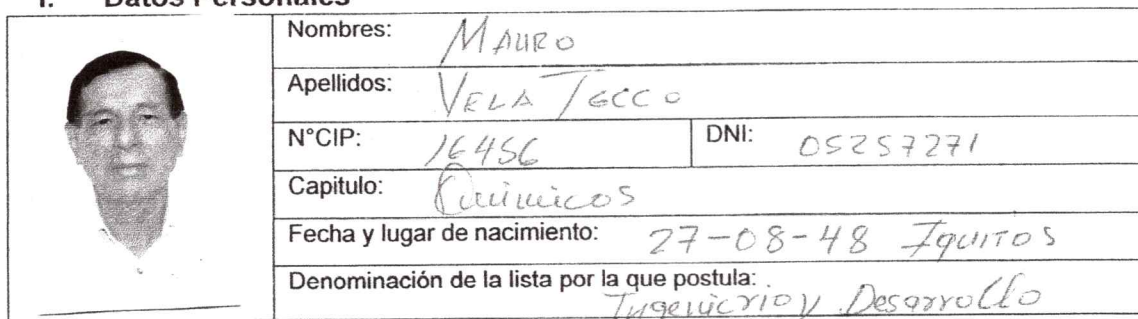 I. Datos Personales
Nombres: MAURO
Apellidos: VELA TECCO
N°CIP: 16456 DNI: 05257271
Capitulo: Químicos
Fecha y lugar de nacimiento: 27-08-48 IQUITOS
Denominación de la lista por la que postula:
Desarrollo